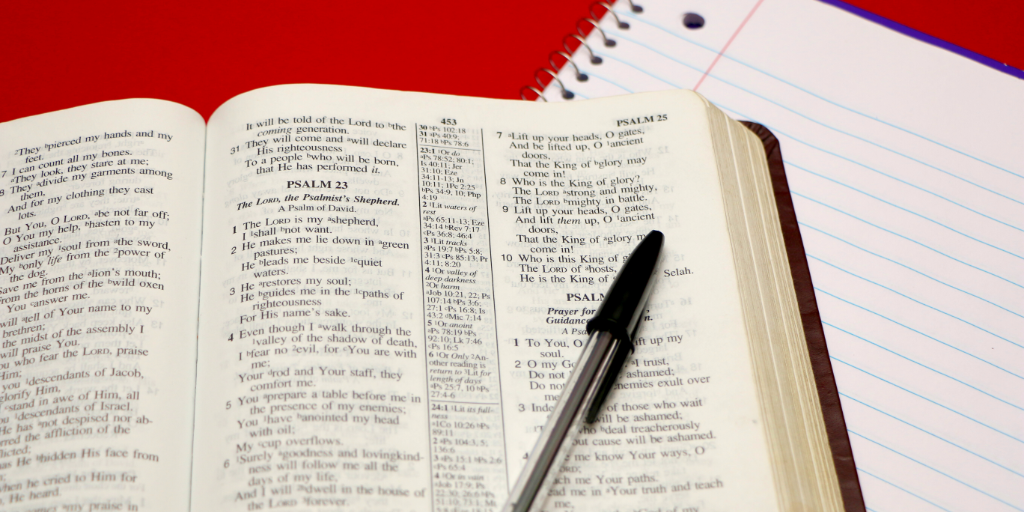 They pierced my hands and my
feet.
7 I can count all my bones.
They look, they stare at me;
8 They divide my garments among
them,
And for my clothing they cast
lots.
But You, O LORD, be not far off;
O You my help, hasten to my
assistance.
Deliver my soul from the sword,
My only life from the power of
the dog.
Save me from the lion's mouth;
From the horns of the wild oxen
You answer me.
will tell of Your name to my
brethren;
the midst of the assembly I
will praise You.
you who fear the LORD, praise
Him;
you descendants of Jacob,
glorify Him,
stand in awe of Him, all
descendants of Israel.
He has not despised nor ab-
the affliction of the
has He hidden His face from
when he cried to Him for
He heard.
my praise in
It will be told of the Lord to the
coming generation.
31 They will come and will declare
His righteousness
To a people who will be born,
that He has performed it.
PSALM 23
The LORD, the Psalmist's Shepherd.
A Psalm of David.
1 The LORD is my shepherd,
I shall not want.
2 He makes me lie down in green
pastures;
He leads me beside quiet
waters.
3 He restores my soul;
He guides me in the paths of
righteousness
For His name's sake.
4 Even though I walk through the
valley of the shadow of death,
I fear no evil, for You are with
me;
Your rod and Your staff, they
comfort me.
5 You prepare a table before me in
the presence of my enemies;
You have anointed my head
with oil;
My cup overflows.
6 Surely goodness and lovingkind-
ness will follow me all the
days of my life,
And I will dwell in the house of
the LORD forever.
453
30 Ps 102:18
31 Ps 40:9;
71:18 Ps 78:6
23:1 Or do
Ps 78:52; 80:1;
Is 40:11; Jer
31:10; Eze
34:11-13; Jn
10:11; 1Pe 2:25
Ps 34:9, 10; Php
4:19
2 Lit waters of
rest
Ps 65:11-13; Eze
34:14 Rev 7:17
Ps 36:8; 46:4
3 Lit tracks
Ps 19:7 Ps 5:8;
31:3 Ps 85:13; Pr
4:11; 8:20
4 Or valley of
deep darkness
Or harm
Job 10:21, 22; Ps
107:14 Ps 3:6;
27:1 Ps 16:8; Is
43:2 Mic 7:14
5 Or anoint
Ps 78:19 Ps
92:10; Lk 7:46
Ps 16:5
6 Or Only An-
other reading is
return to Lit for
length of days
Ps 25:7, 10 Ps
27:4-6
24:1 Lit its full-
ness
1Co 10:26 Ps
89:11
2 Ps 104:3, 5;
136:6
3 Ps 15:1 Ps 2:6
Ps 65:4
PSALM 25
7 Lift up your heads, O gates,
And be lifted up, O ancient
doors,
That the King of glory may
come in!
8 Who is the King of glory?
The LORD strong and mighty,
The LORD mighty in battle.
9 Lift up your heads, O gates,
And lift them up, O ancient
doors,
That the King of glory
come in!
10 Who is this King of
The LORD of hosts,
He is the King of Selah.
PSALM
Prayer for
Guidance
A
1 To You, O lift up my
soul.
2 O my I trust,
Do not ashamed;
Do not enemies exult over
me.
3 of those who wait
will be ashamed;
deal treacherously
cause will be ashamed.
me know Your ways, O
me Your paths.
me in Your truth and teach
me,